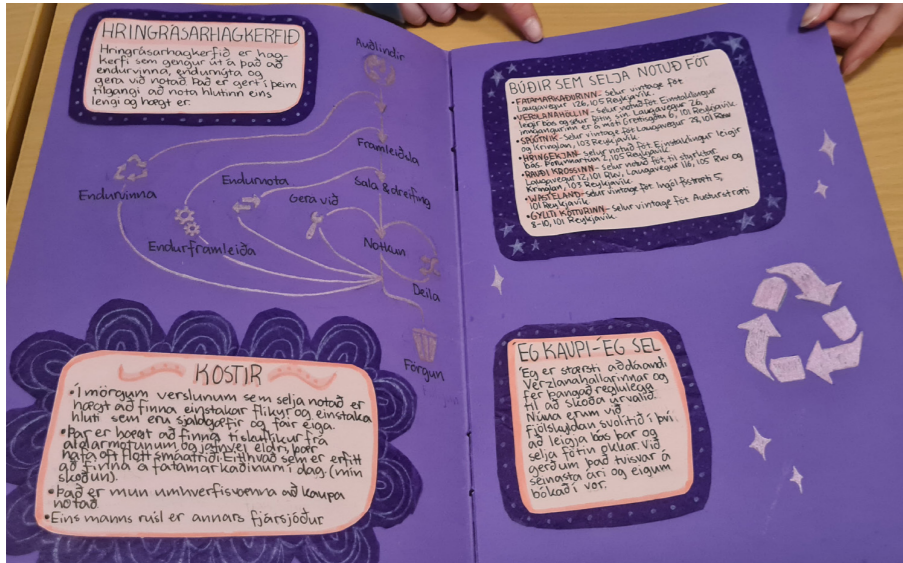 HRINGRÁSARHAGKERFIÐ
Hringrásarhagkerfið er hag-
kerfi sem gengur út á það að
endurvinna, endurnýta og
gera við notað. Það er gert í þeim
tilgangi að nota hlutinn eins
lengi og hægt er.
Auðlindir
Framleiðsla
Endurvinna
Endurnota
Sala & dreifing
Gera við
Endurframleiða
Notkun
Deila
Förgun
KOSTIR
•Í mörgum verslunum sem selja notað er
hægt að finna einstakar flíkur og einstaka
hluti sem eru sjaldgæfir og fáir eiga.
•Þar er hægt að finna tískuflíkur frá
aldarmótunum og jafnvel eldri, þær
hafa oft flott smáatriði. Eitthvað sem er erfitt
að finna á fatamarkaðinum í dag. (mín
skoðun).
•Það er mun umhverfisvænna að kaupa
notað.
•Eins manns rusl er annars fjársjóður
BÚÐIR SEM SELJA NOTUÐ FÖT
•FATAMARKAÐURINN- Selur vintage föt
Laugavegur 126, 105 Reykjavík.
•VERZLANAHÖLLIN- Selur notuð föt. Einstaklingur
leigir bás og selur fötin sín. Laugavegur 26,
inngangurinn er á móti Grettisgötu 6, 101 Reykjavík
•SPÚTNIK- Selur vintage föt Laugavegur 28, 101 Rkv
og Kringlan, 103 Reykjavík
•HRINGEKJAN- selur notuð föt Einstaklingur leigir
bás. Þórunnartún 2, 105 Reykjavík.
•RAUÐI KROSSINN- Selur notuð föt til styrktar.
Laugavegur 12, 101 Rkv, Laugavegur 116, 105 Rkv og
Kringlan, 103 Reykjavík.
•WASTELAND- selur vintage föt. Ingólfsstræti 5,
101 Reykjavík.
•GYLLTI KÖTTURINN- selur vintage föt Austurstræti
8-10, 101 Reykjavík.
ÉG KAUPI-ÉG SEL
Ég er stærsti aðdáandi
Verzlanahallarinnar og
fer þangað reglulega
til að skoða úrvalið.
Núna erum við
fjölskyldan svolítið í því
að leigja bás þar og
selja fötin okkar. Við
gerðum það tvisvar á
seinasta ári og eigum
bókað í vor.